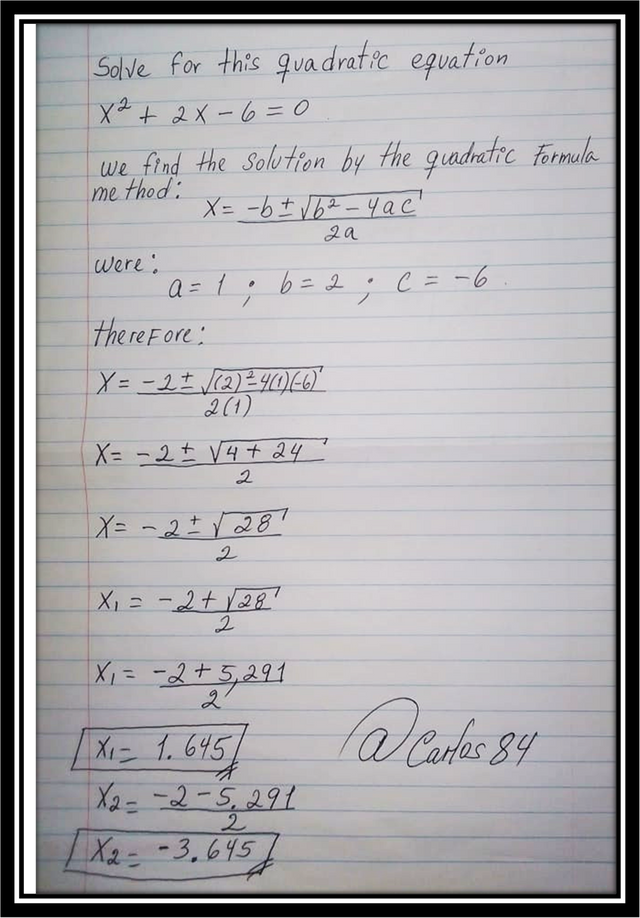 Solve for this quadratic equation
x² + 2x - 6 = 0
we find the solution by the quadratic Formula
method:
x = -b ± √b² - 4ac
2a
were:
a = 1 ; b = 2 ; c = -6.
thereFore:
x = -2 ± √(2)² - 4(1)(-6)
2(1)
x = -2 ± √4 + 24
2
x = -2 ± √28
2
x₁ = -2 + √28
2
x₁ = -2 + 5,291
2
x₁ = 1.645
@Carlos84
x₂ = -2 - 5.291
2
x₂ = -3.645